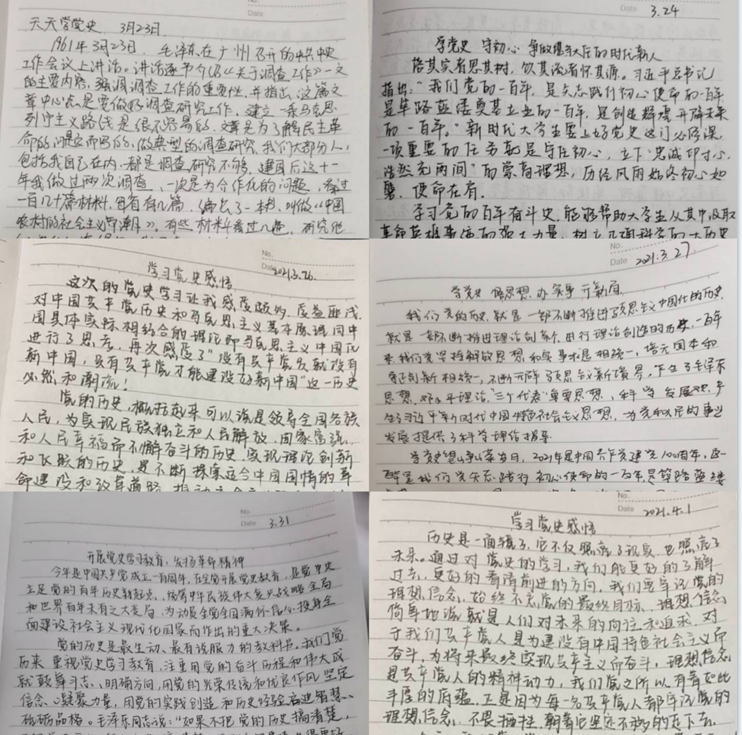 Date
天天学党史 3月23日
1961年3月23日,毛泽东在广州召开的中共中央
工作会议上讲话。讲话逐节介绍《关于调查工作》一文
的主要内容,强调调查工作的重要性,并指出,这篇文
章中心点是要做好调查研究工作。建立一条马克思
列宁主义路线是很不容易的
命的
包括我自己在内,都是调查研究不够,建国后这十一
年我做过两次调查,一次是为合作化的问题,看过
一百几十篇材料,每省有几篇,编出了一本书,叫做《中国
农村的社会主义高潮》。有些材料看过几遍,研究他
3.24
Date
学党史 守初心 争做堪当大任的时代新人
落其实者思其树,饮其流者怀其源。习近平总书记
指出:"我们党的一百年,是矢志践行初心使命的一百年
是筚路蓝缕奠基立业的一百年,是创造辉煌开辟未来
的一百年。"新时代大学生要上好党史这门必修课,
一项重要的任务就是守住初心,立下"忠诚印寸心,
浩然充两间"的崇高理想,历经风雨始终初心如
磐,使命在肩。
学习党的百年奋斗史,能够帮助大学生从其中汲取
No.
Date 2021.3.26.
学习党史感悟
这次的党史学习让我感受颇多,受益匪浅
对中国共产党历史和马克思主义基本原理同中
国具体实际相结合的理论即马克思主义中国化
进行了思考,再次感受了"没有共产党就没有
新中国,只有共产党才能建设好新中国"这一历史
必然和潮流!
党的历史,概括起来可以说是领导全国各族
人民,为实现民族独立和人民解放,国家富强
和人民幸福而不懈奋斗的历史,实现理论创新
和飞跃的历史,是不断探索适合中国国情的革
命建设和改革道路
No.
Date 2021.3.27
学党史 悟思想 办实事 开新局
我们党的历史,就是一部不断推进马克思主义中国化的历史,
就是一部不断推进理论创新,进行理论创造的历史。一百年
来,我们党坚持解放思想和实事求是相统一,培元固本和
守正创新相统一,不断开辟马克思主义新境界,产生了毛泽东
思想,邓小平理论,"三个代表"重要思想,科学发展观,产
生了习近平新时代中国特色社会主义思想,为党和人民的事业
发展提供了科学理论指导。
2021年是中国共产党建党100周年,这一
百年是我们党矢志践行初心使命的一百年是筚路蓝缕
No.
Date 3.31
开展党史学习教育,发扬革命精神
今年是中国共产党成立一百周年,在全党开展党史教育,是党中央
立足党的百年历史新起点,统筹中华民族伟大复兴战略全局
和世界百年未有之大变局,为动员全党全国满怀信心投身全
面建设社会主义现代化国家而作出的重大决策。
党的历史是最生动、最有说服力的教科书。我们党
历来重视党史学习教育,注重用党的奋斗历程和伟大成
就鼓舞斗志、明确方向,用党的光荣传统和优良作风坚定
信念、凝聚力量,用党的实践创造和历史经验启迪智慧、
砥砺品格。毛泽东同志说:"如果不把党的历史搞清楚,
No.
Date 2021.4.1
学习党史感悟
历史是一面镜子,它不仅照亮了现实,也照亮了
未来。通过对党史的学习,我们能更好的了解
过去,更好的看清前进的方向。我们要牢记党的
理想信念,始终不忘党的最终目标。理想信念
简单地说就是人们对未来的向往和追求,对
于我们共产党人是为建设有中国特色社会主义而
奋斗,为将来最终实现共产主义而奋斗,理想信念
是共产党人的精神动力,我们党之所以有着如此
丰厚的底蕴,正是因为每一名共产党人都牢记党的
理想信念,不畏牺牲,朝着它坚定不移的走下去。